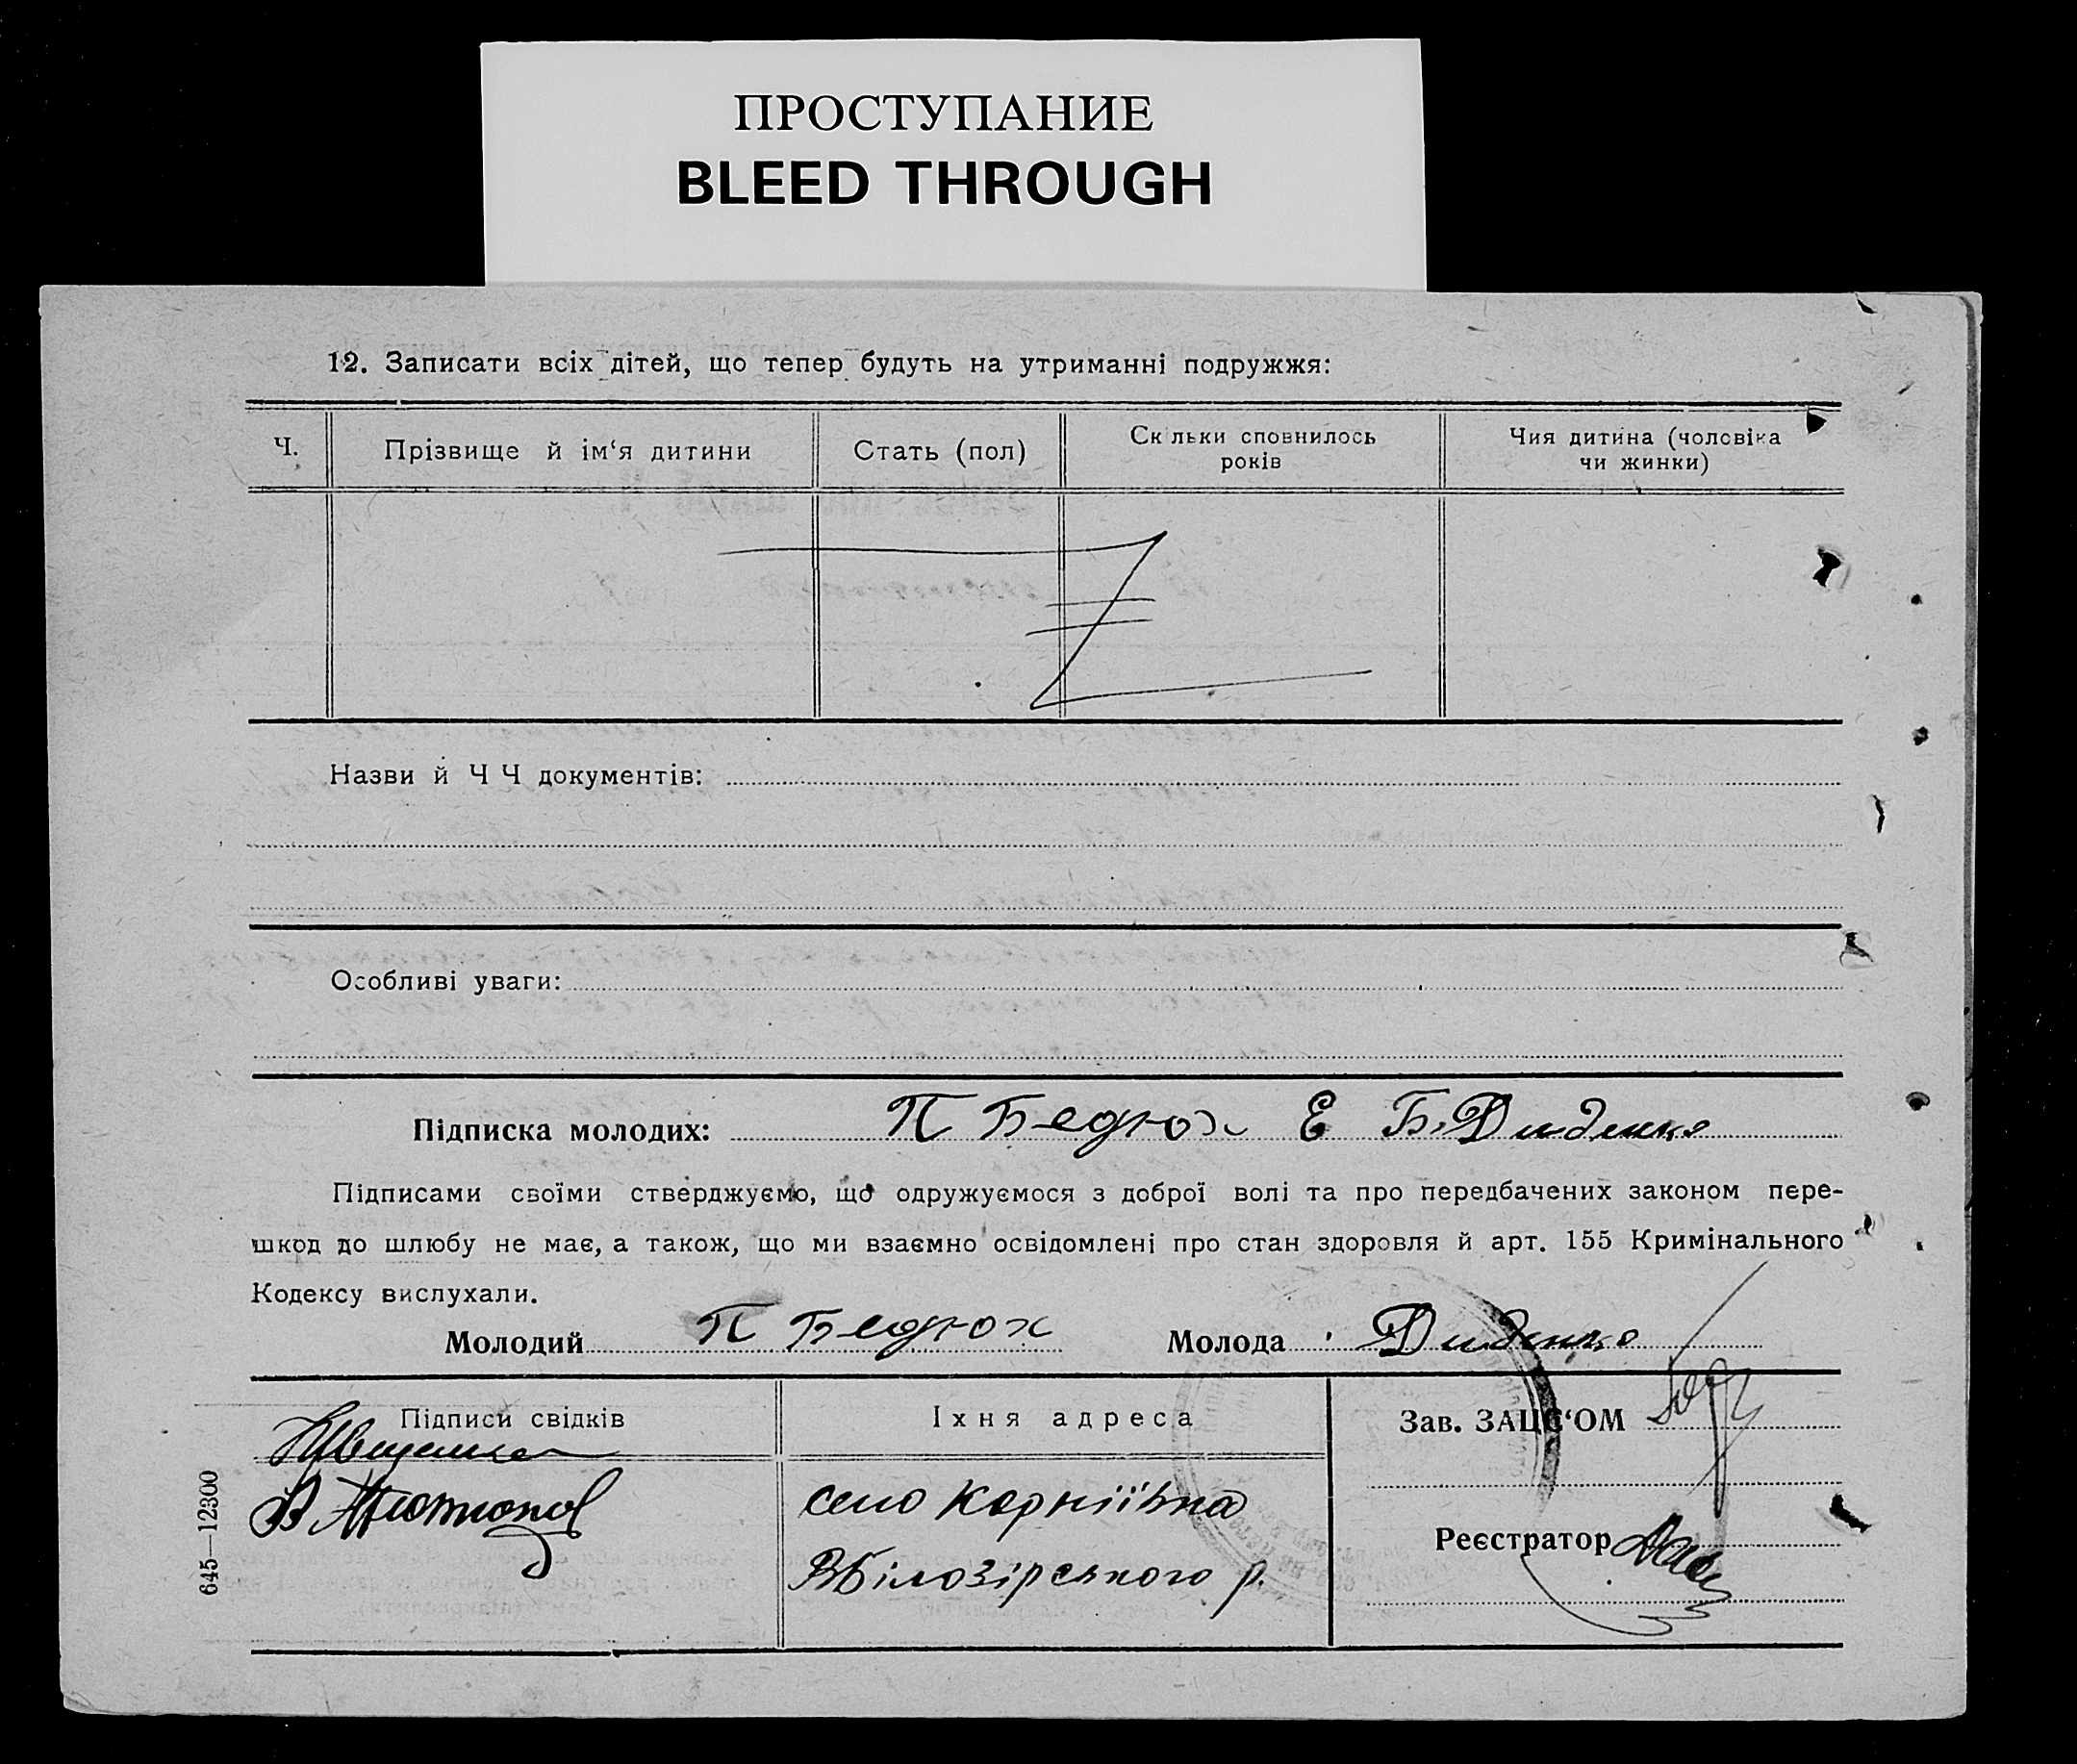 ПРОСТУПАНИЕ
BLEED THROUGH
12. Записати всіх дітей, що тепер будуть на утриманні подружжя:
Ч. Прізвище й ім‘я дитини Стать (пол) Скільки сповнилось років Чия дитина (чоловіка чи жинки)
Назви й Ч Ч документів:
Особливі уваги:
Підписка молодих: П Бедюх Е Б. Диденко
Підписами своїми стверджуємо, що одружуємося з доброї волі та про передбачених законом пере-
шкод до шлюбу не має, а також, що ми взаємно освідомлені про стан здоровля й арт. 155 Кримінального
Кодексу вислухали.
Молодий П Бедюх Молода Диденко
Підписи свідків Їхня адреса Зав. ЗАЦС‘ОМ
село Корніївка
Білозірського р.
Реєстратор
645—12300